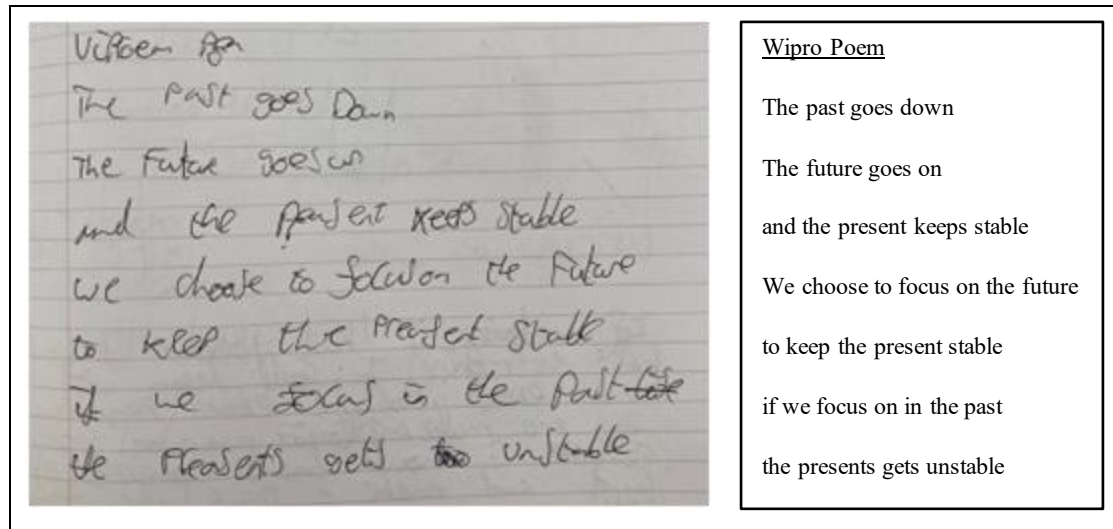 The Past goes Down
The Future goes on
and the keeps stable
we choose to focus on the Future
to keep the stable
if we focus in the Past
the gets unstable
Wipro Poem
The past goes down
The future goes on
and the present keeps stable
We choose to focus on the future
to keep the present stable
if we focus on in the past
the presents gets unstable